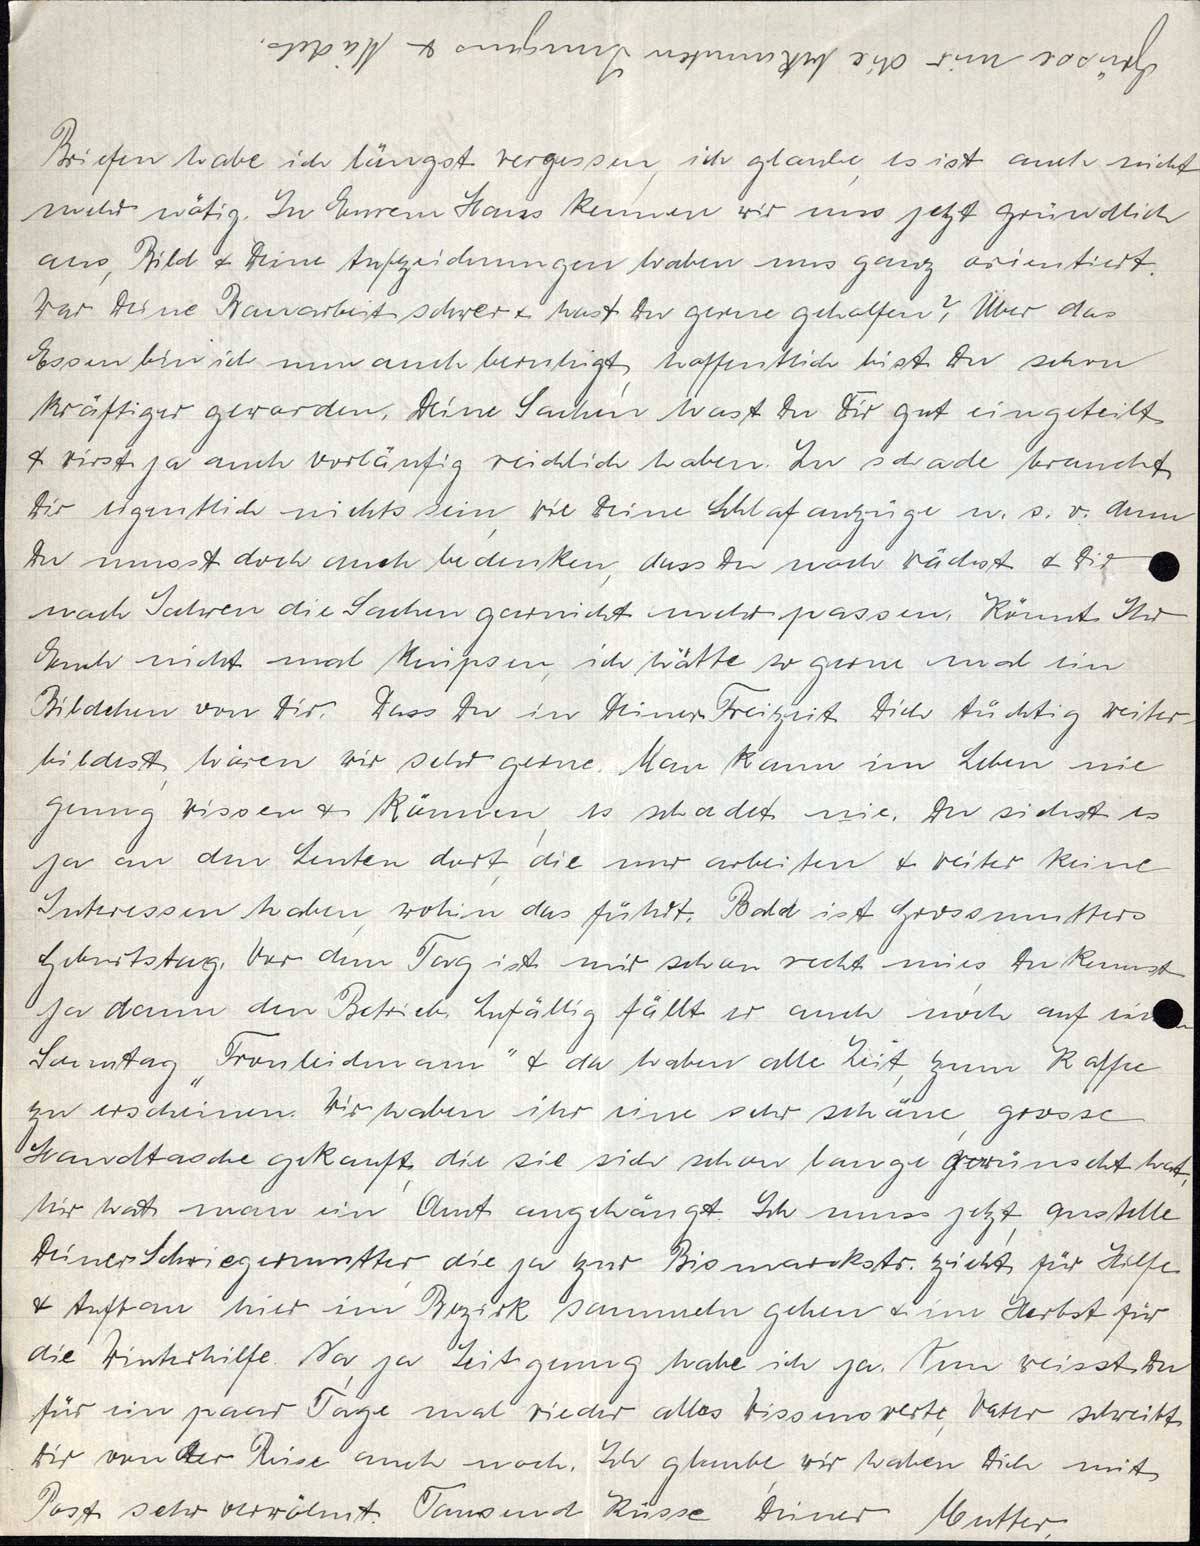 Grüsse mir die bekannten Jungens & Mädels.
Briefen habe ich längst vergessen, ich glaube, es ist auch nicht
mehr nötig. In Eurem Haus kennen wir uns jetzt gründlich
aus, Bild & Deine Aufzeichnungen haben uns ganz orientiert.
War Deine Bauarbeit schwer & hast Du gerne geholfen? Über das
Essen bin ich nun auch beruhigt, hoffentlich bist Du schon
kräftiger geworden. Deine Sachen hast Du Dir gut eingeteilt
& wirst ja auch vorläufig reichlich haben. Zu schade braucht
Dir eigentlich nichts sein, wie Deine Schlafanzüge u. s. w. denn
Du musst doch auch bedenken, dass Du noch wächst & Dir
nach Jahren die Sachen garnicht mehr passen. Könnt Ihr
Euch nicht mal knipsen, ich hätte so gerne mal ein
Bildchen von Dir. Dass Du in Deiner Freizeit Dich tüchtig weiter-
bildest, hören wir sehr gerne. Man kann im Leben nie
genug wissen & können, es schadet nie. Du siehst es
ja an den Leuten dort, die nur arbeiten & weiter keine
Interessen haben, wohin das führt. Bald ist Grossmutters
Geburtstag. Vor dem Tag ist mir schon recht mies, Du kennst
ja dann den Betrieb. Zufällig fällt er auch noch auf einen
Sonntag "Fronleichnam" & da haben alle Zeit, zum Kaffee
zu erscheinen. Wir haben ihr eine sehr schöne, grosse
Handtasche gekauft, die sie sich schon lange gewünscht hat.
Mir hat man ein Amt angehängt. Ich muss jetzt, anstelle
Deiner Schwiegermutter, die ja zur Bismarckstr. zieht, für Hilfe
& Aufbau hier im Bezirk sammeln gehen & im Herbst für
die Winterhilfe. Na, ja Zeit genug habe ich ja. Nun weisst Du
für ein paar Tage mal wieder alles Wissenswerte, Vater schreibt
Dir von der Reise auch noch. Ich glaube, wir haben Dich mit
Post sehr verwöhnt. Tausend Küsse Deiner Mutter.